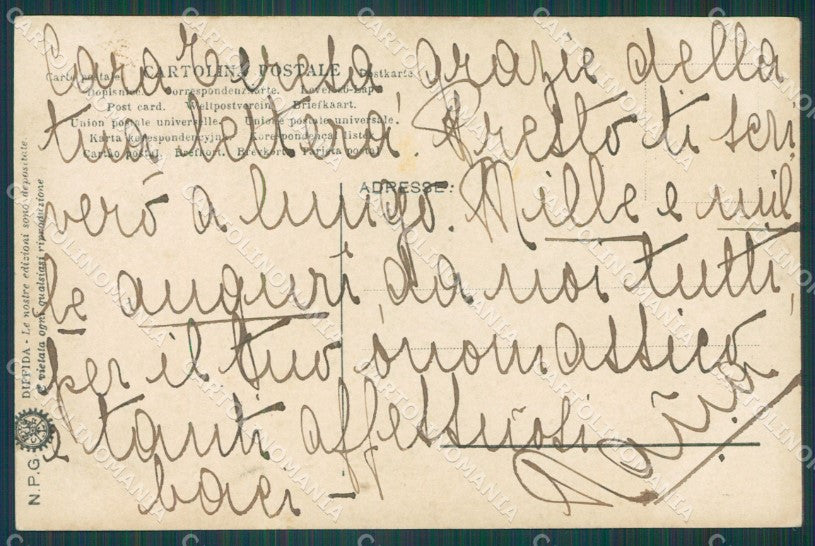 Cara grazie della
tua lettera. Presto ti scri
verò a lungo. Mille e mil
le auguri da noi tutti,
per il tuo onomastico
e tanti affettuosi
baci –
Carte postale CARTOLINA POSTALE Postkarte
Dopisnice Correspondenzkarte. Levelező-Lap.
Post card. Weltpostverein. Briefkaart.
Union postale universelle. Unione postale universale.
Karta korespondencyjna. Korespondenční lístek.
Cartão postal. Brefkort. Brevkort. Tarjeta postal
ADRESSE:
DIFFIDA - Le nostre edizioni sono depositate.
È vietata ogni qualsiasi riproduzione
N.P.G.
CARTOLINOMANIA